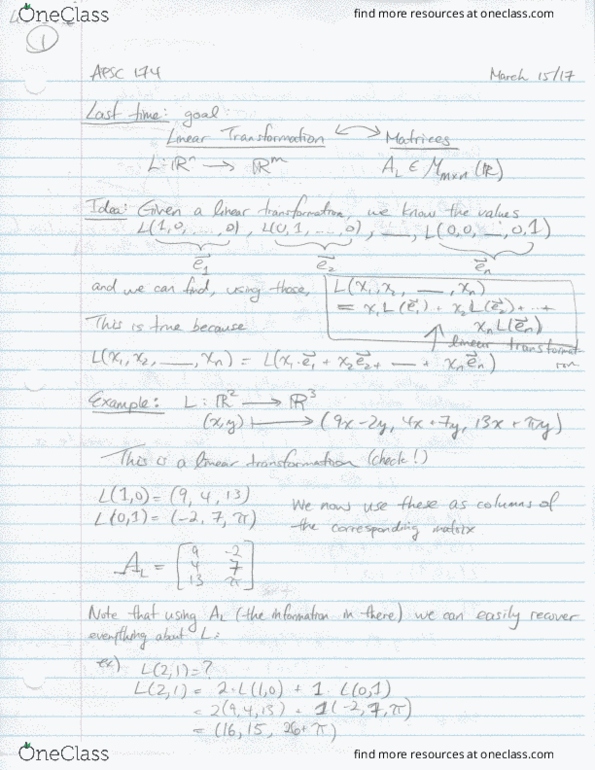 OneClass
find more resources at oneclass.com
1
APSC 174
March 15/17
Last time: goal:
Linear Transformation ↔ Matrices
L: ℝⁿ → ℝᵐ A_L ∈ M_{m×n}(ℝ)
Idea: Given a linear transformation, we know the values
L(1,0,...,0), L(0,1,...,0), —, L(0,0,—,0,1)
e⃗₁ e⃗₂ e⃗ₙ
and we can find, using those, L(x₁,x₂, —, xₙ)
= x₁L(e⃗₁) + x₂L(e⃗₂) + ... +
xₙL(e⃗ₙ)
This is true because
linear transformation
L(x₁,x₂,—,xₙ) = L(x₁·e⃗₁ + x₂e⃗₂ + — + xₙe⃗ₙ)
Example: L: ℝ² → ℝ³
(x,y) ⟼ (9x-2y, 4x+7y, 13x+πy)
This is a linear transformation (check!)
L(1,0) = (9, 4, 13)
L(0,1) = (-2, 7, π)
We now use these as columns of
the corresponding matrix
A_L = [9 -2
4 7
13 π]
Note that using A_L (the information in there) we can easily recover
everything about L:
ex) L(2,1) = ?
L(2,1) = 2·L(1,0) + 1·L(0,1)
= 2(9,4,13) + 1(-2,7,π)
= (16, 15, 26+π)
OneClass
find more resources at oneclass.com